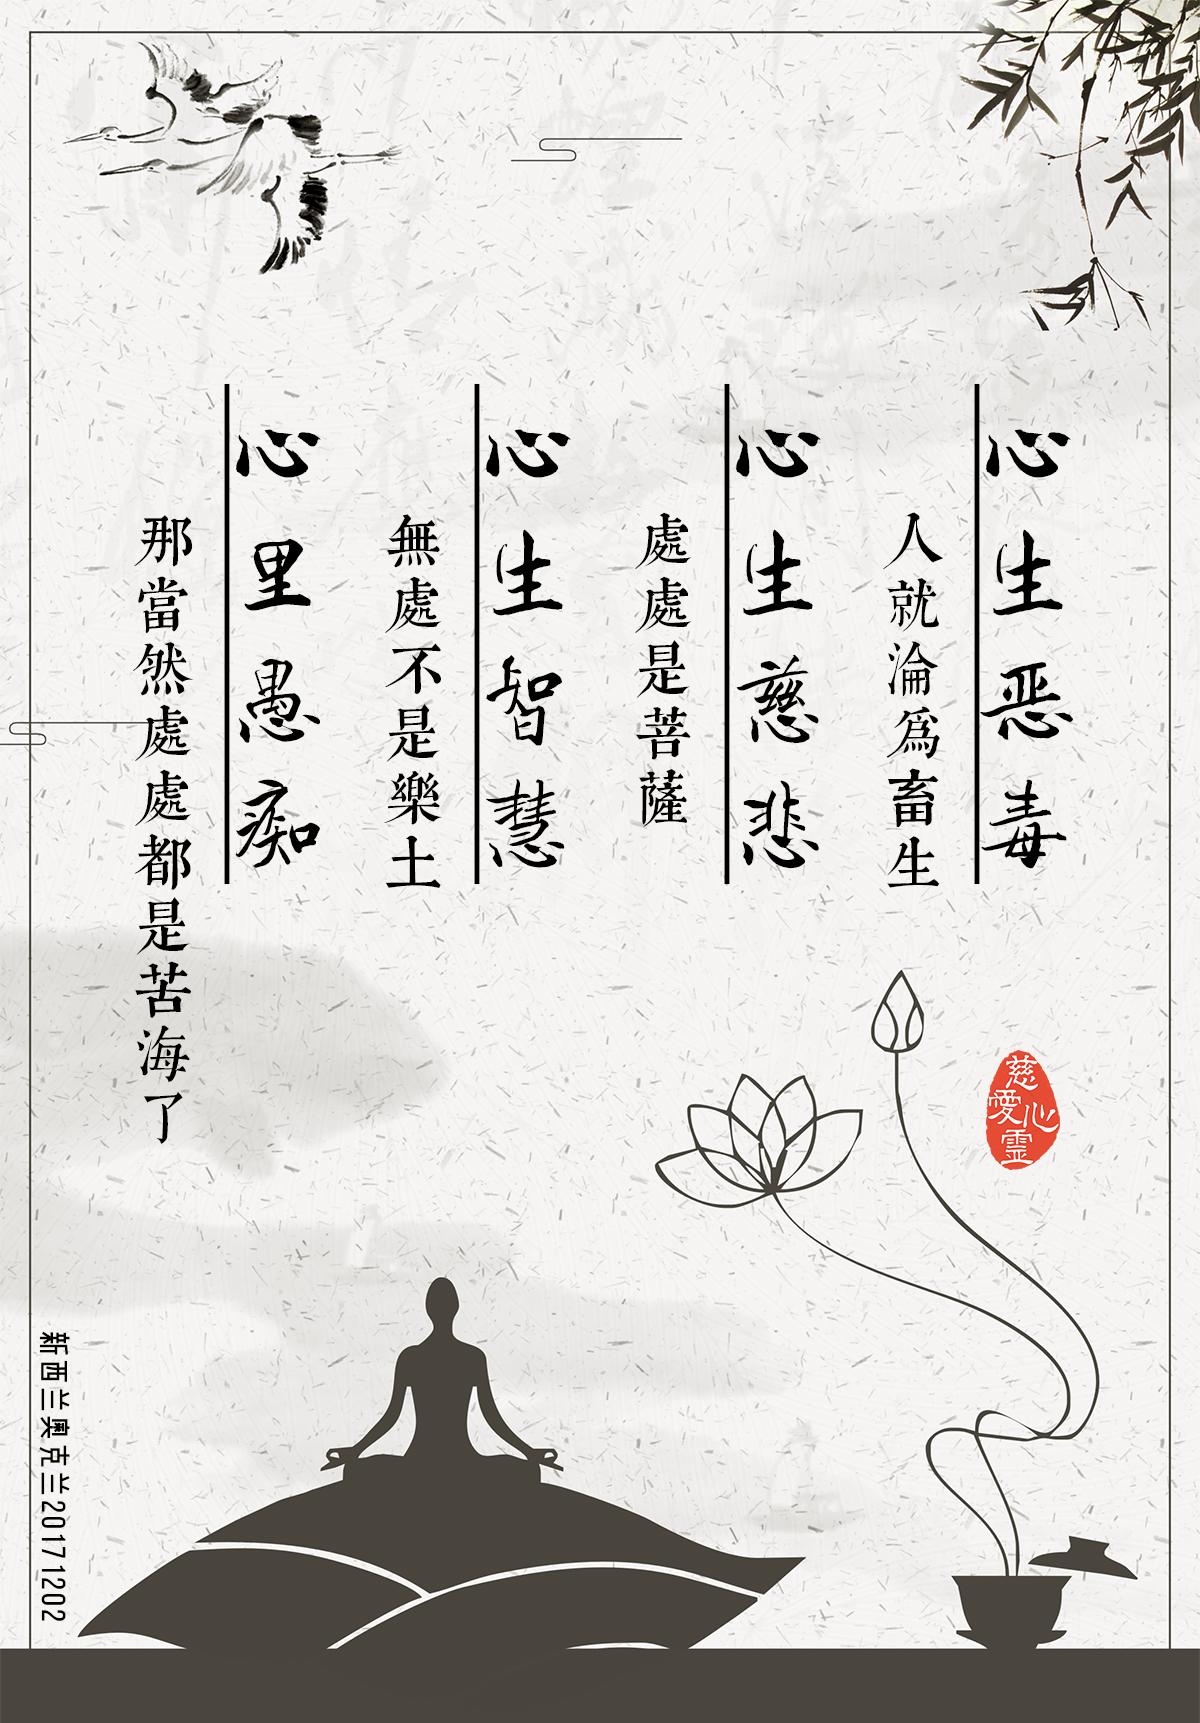 心生恶毒
人就淪爲畜生
心生慈悲
處處是菩薩
心生智慧
無處不是樂土
心里愚痴
那當然處處都是苦海了
慈愛心靈
新西兰奥克兰20171202